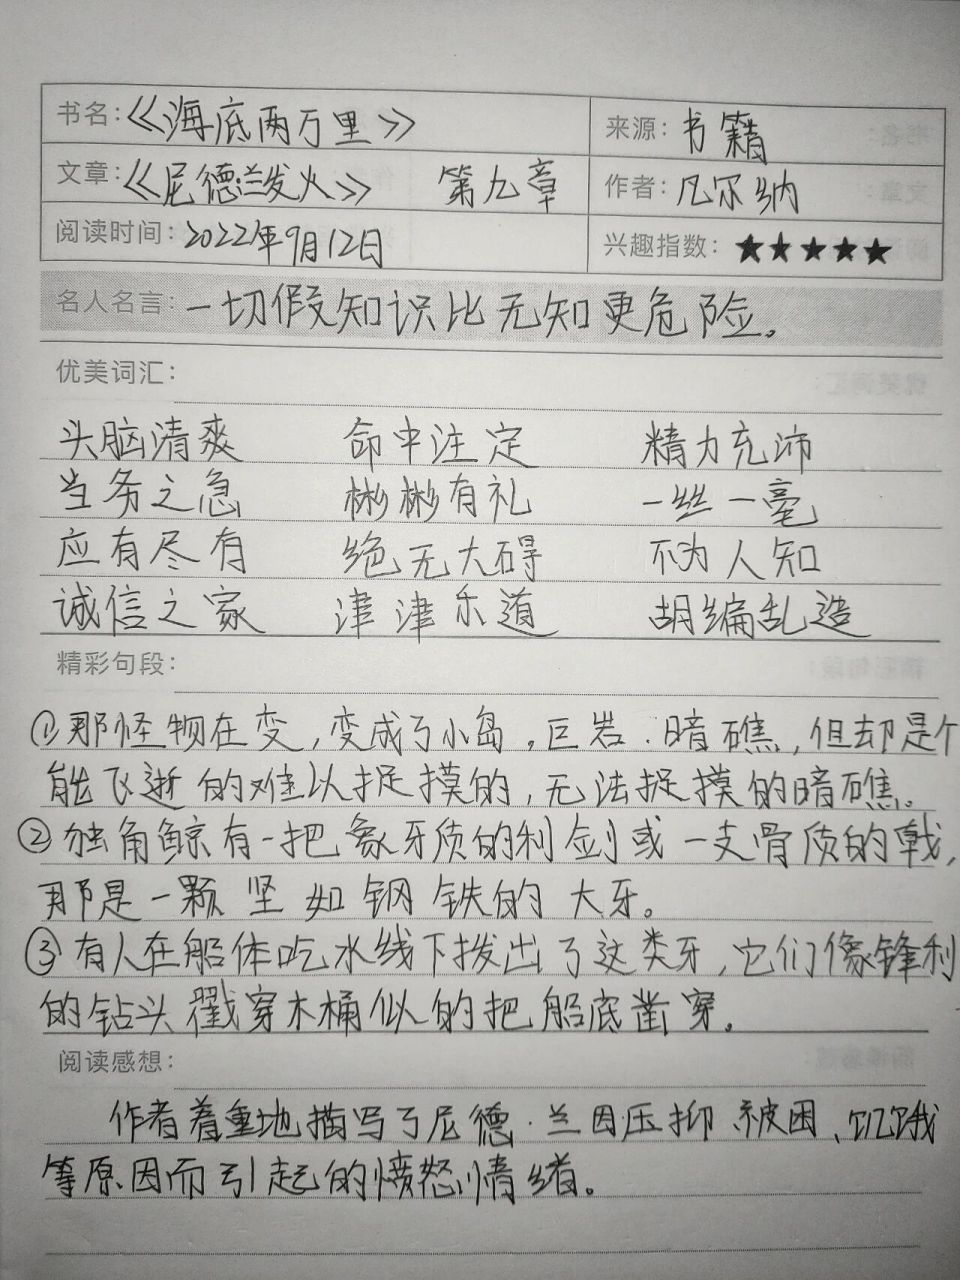 书名：《海底两万里》 来源：书籍
文章：《尼德兰发火》 第九章 作者：凡尔纳
阅读时间：2022年9月12日 兴趣指数：★★★★★
名人名言：一切假知识比无知更危险。
优美词汇：
头脑清爽 命中注定 精力充沛
当务之急 彬彬有礼 一丝一毫
应有尽有 绝无大碍 不为人知
诚信之家 津津乐道 胡编乱造
精彩句段：
①那怪物在变，变成了小岛，巨岩．暗礁，但却是个
能飞逝的难以捉摸的，无法捉摸的暗礁。
②独角鲸有一把象牙质的利剑或一支骨质的戟，
那是一颗坚如钢铁的大牙。
③有人在船体吃水线下拨出了这类牙，它们像锋利
的钻头戳穿木桶似的把船底凿穿。
阅读感想：
作者着重地描写了尼德·兰因压抑被困、饥饿
等原因而引起的愤怒情绪。